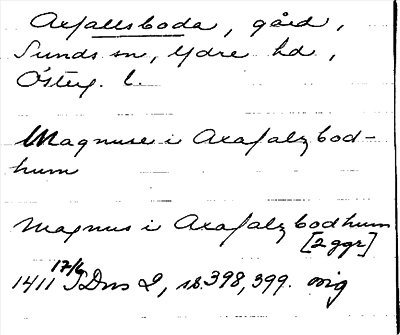 Axfallsboda, gård,
Sunds sn, Ydre hd,
Österg. l.
Magnuse i Axafalzbod-
hum
Magnus i Axafalzbodhum
[2 ggr]
1411 17/6 SDns 2, s. 398, 399. orig